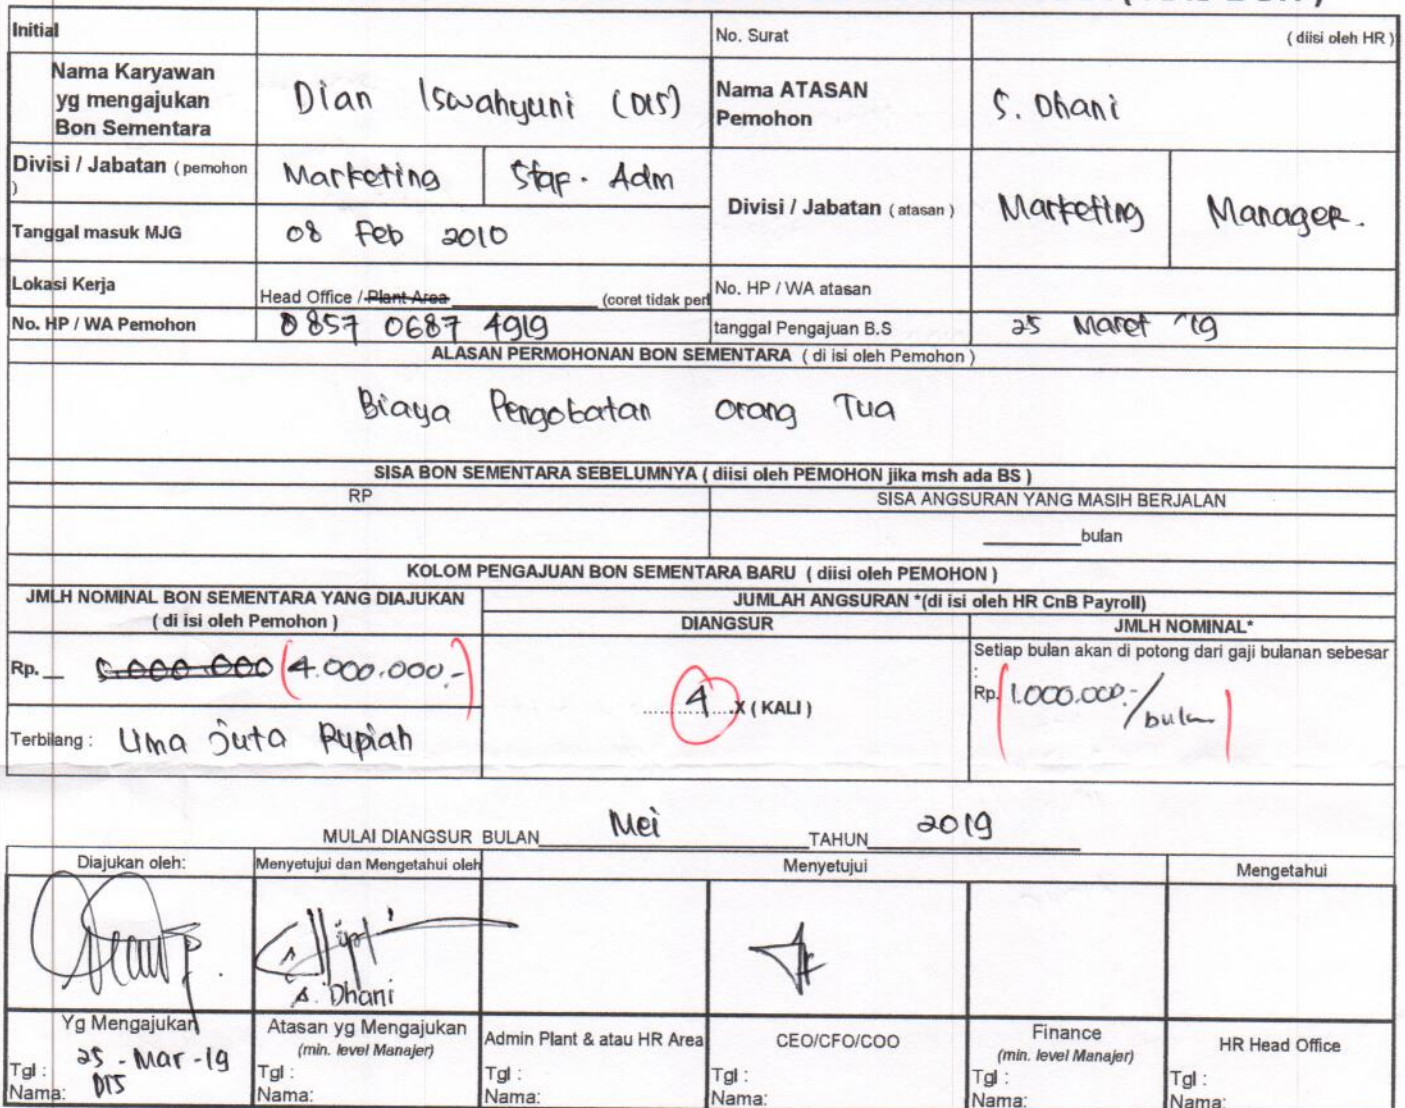 Initial
No. Surat
( diisi oleh HR )
Nama Karyawan
yg mengajukan
Bon Sementara
Dian Iswahyuni (DIS)
Nama ATASAN
Pemohon
S. Dhani
Divisi / Jabatan ( pemohon
)
Marketing
Staf. Adm
Divisi / Jabatan ( atasan )
Marketing
Manager.
Tanggal masuk MJG
08 Feb 2010
Lokasi Kerja
Head Office / Plant Area ________ (coret tidak perl
No. HP / WA atasan
No. HP / WA Pemohon
0857 0687 4919
tanggal Pengajuan B.S
25 Maret '19
ALASAN PERMOHONAN BON SEMENTARA ( di isi oleh Pemohon )
Biaya Pengobatan Orang Tua
SISA BON SEMENTARA SEBELUMNYA ( diisi oleh PEMOHON jika msh ada BS )
RP
SISA ANGSURAN YANG MASIH BERJALAN
________bulan
KOLOM PENGAJUAN BON SEMENTARA BARU ( diisi oleh PEMOHON )
JMLH NOMINAL BON SEMENTARA YANG DIAJUKAN
( di isi oleh Pemohon )
JUMLAH ANGSURAN *(di isi oleh HR CnB Payroll)
DIANGSUR
JMLH NOMINAL*
Rp. __ 5.000.000 (4.000.000.-)
4 X ( KALI )
Setiap bulan akan di potong dari gaji bulanan sebesar
:
Rp. (1.000.000.-/bulan)
Terbilang : Lima Juta Rupiah
MULAI DIANGSUR BULAN Mei TAHUN 2019
Diajukan oleh:
Menyetujui dan Mengetahui oleh
Menyetujui
Mengetahui
S. Dhani
Yg Mengajukan
Tgl : 25 - Mar - 19
Nama: DIS
Atasan yg Mengajukan
(min. level Manajer)
Tgl :
Nama:
Admin Plant & atau HR Area
Tgl :
Nama:
CEO/CFO/COO
Tgl :
Nama:
Finance
(min. level Manajer)
Tgl :
Nama:
HR Head Office
Tgl :
Nama: